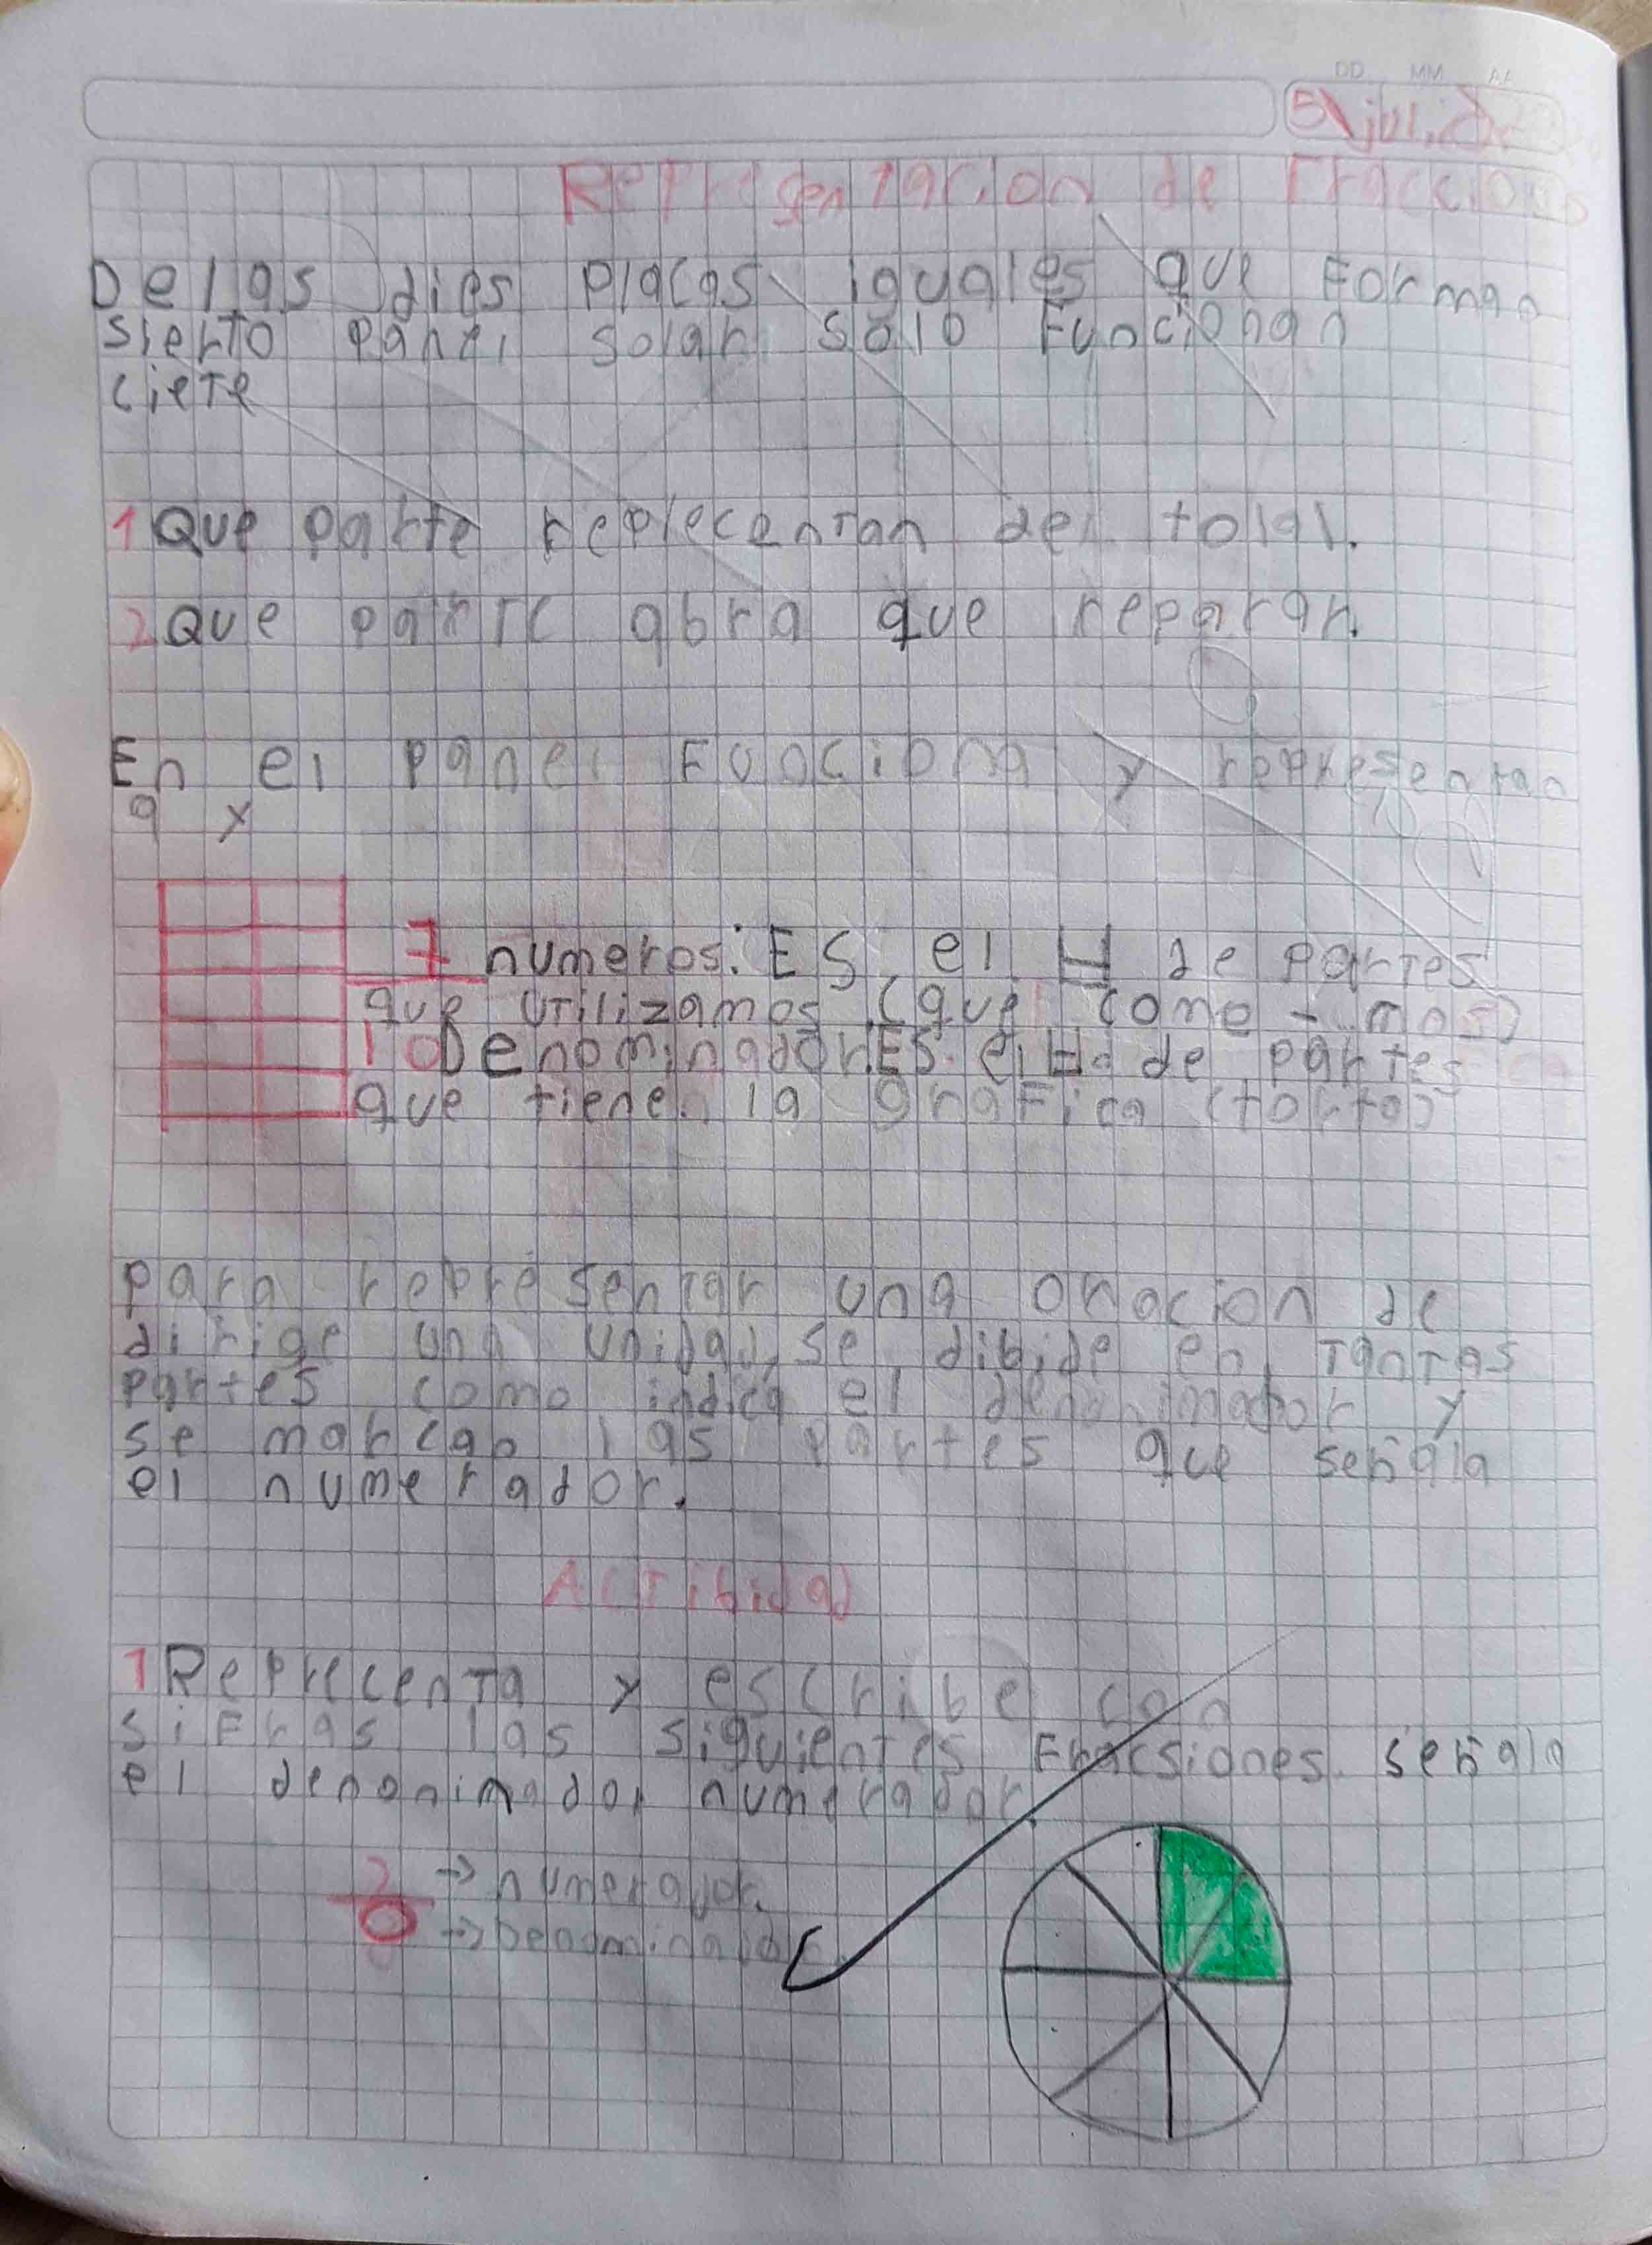 DD MM AA
5 julio
Representacion de Fracciones
De las dies placas iguales que Forman
sierto panel solar solo Funcionan
ciete
1 Que parte replecentan del total.
2 Que parte abra que reparar.
En el panel Funciona y representan
9 x
7 numeros: ES el # de partes
que utilizamos (que come-mos)
10 Denominador: ES el # de partes
que tiene la grafica (torta)
para representar una oracion de
dirige una unidad, se dibide en tantas
partes como indica el denominador y
se marcan las partes que señala
el numerador.
Actibidad
1 Reprecenta y escribe con
siFras las siguientes Fracsiones. señala
el denonimador numerador.
2 → numerador.
→ Denominador.